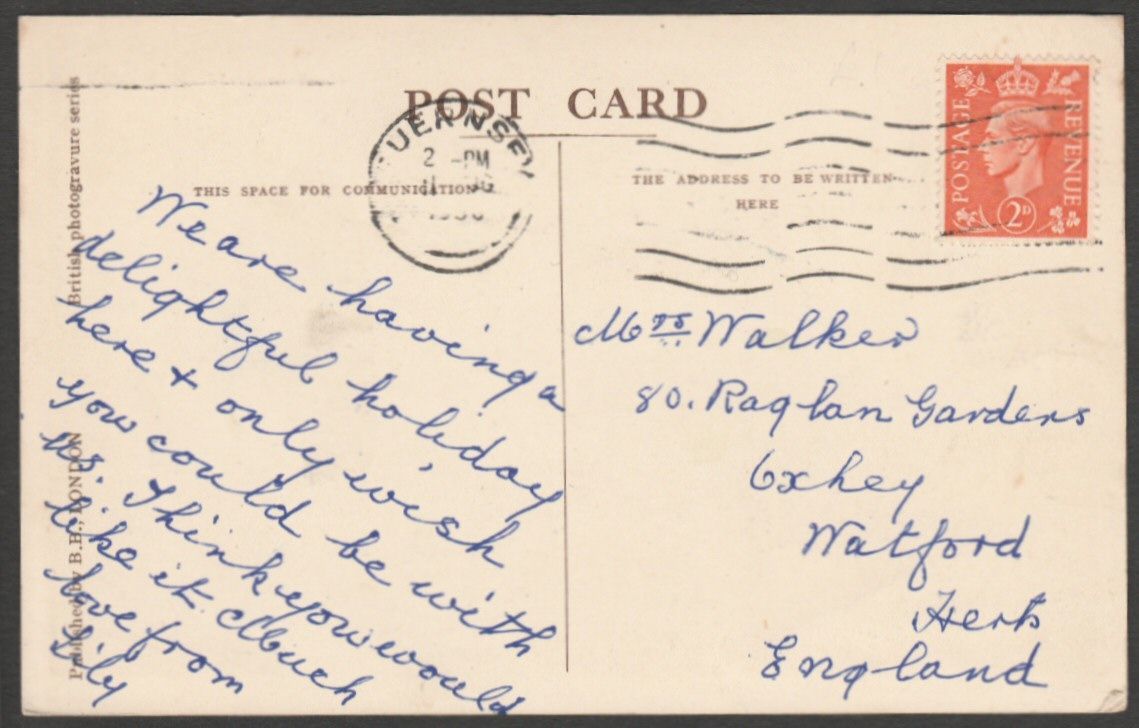 POST CARD
GUERNSEY
2 - PM
11
THIS SPACE FOR COMMUNICATION
THE ADDRESS TO BE WRITTEN
HERE
POSTAGE
REVENUE
2D
British photogravure series
Published by B.B., LONDON
We are having a
delightful holiday
here + only wish
you could be with
us. Think you would
like it. Much
love from
Lily
Mrs Walker
80. Raglan Gardens
Oxhey
Watford
Herts
England